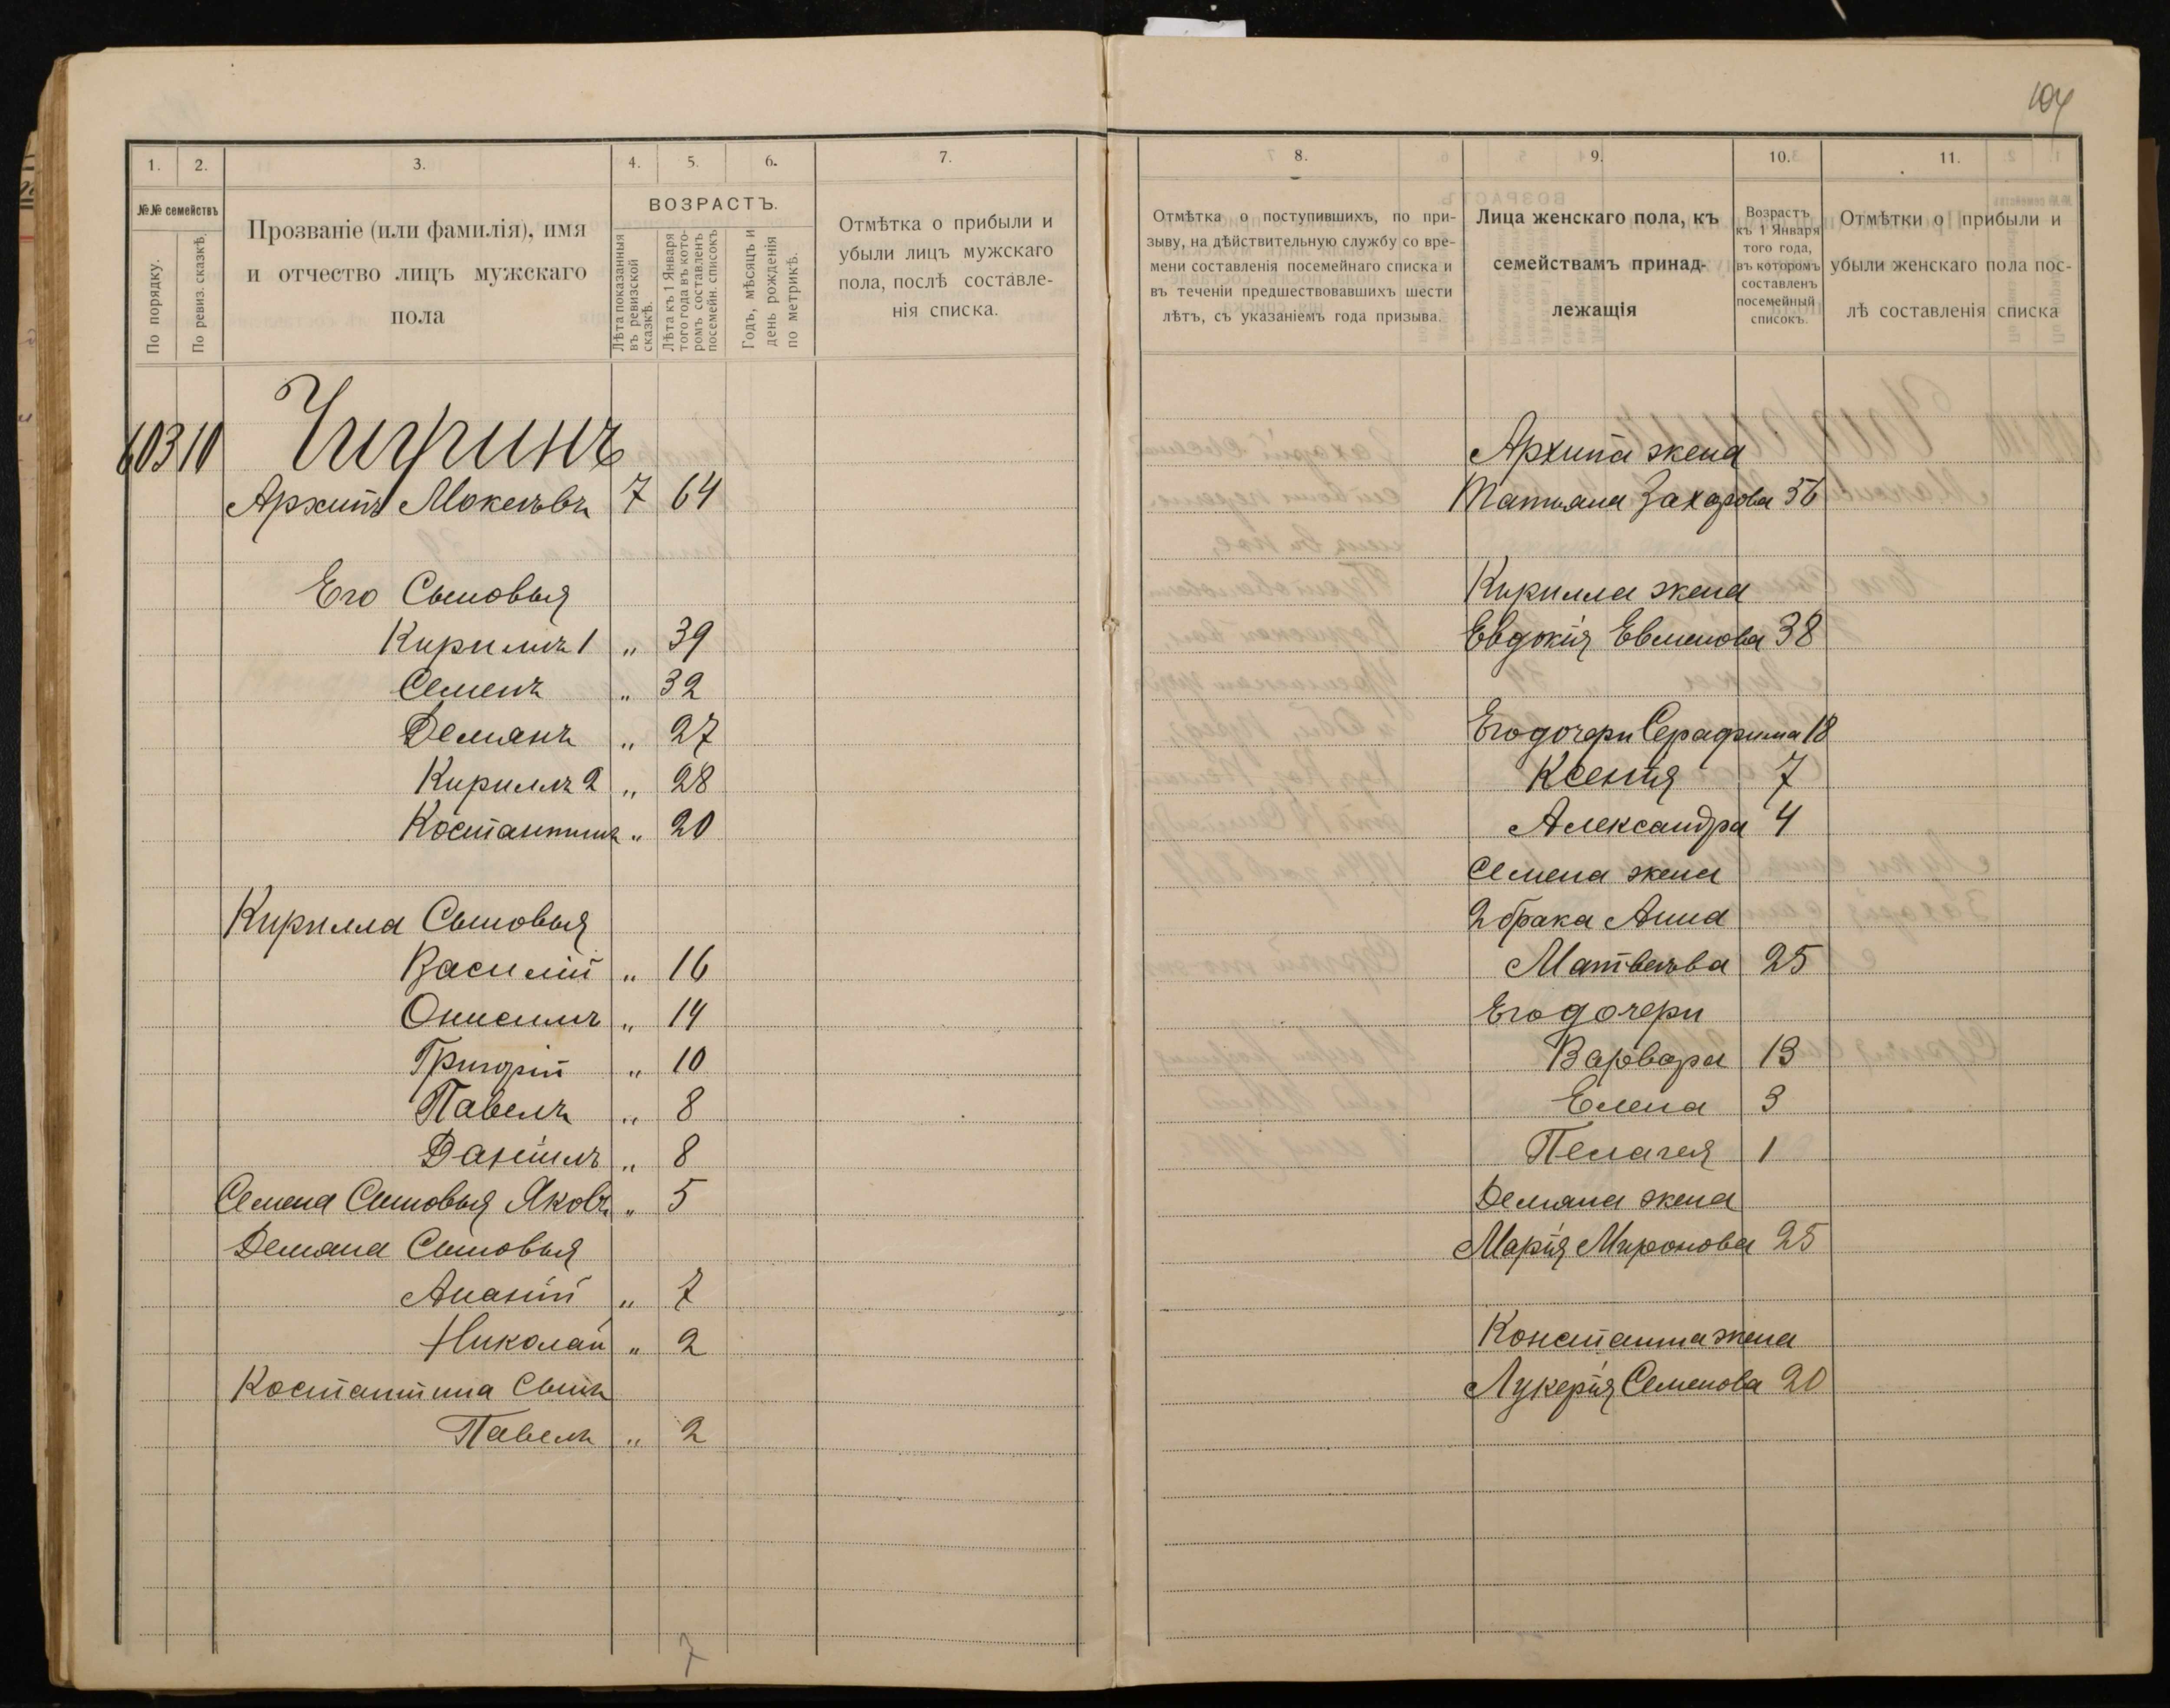 104
1.
2.
3.
4.
5.
6.
7.
№№ семействъ
По порядку.
По ревиз. сказкѣ.
Прозваніе (или фамилія), имя
и отчество лицъ мужскаго
пола
ВОЗРАСТЪ.
Лѣта показанныя
въ ревизской
сказкѣ.
Лѣта къ 1 Января
того года въ кото-
ромъ составленъ
посемейн. списокъ
Годъ, мѣсяцъ и
день рожденія
по метрикѣ.
Отмѣтка о прибыли и
убыли лицъ мужскаго
пола, послѣ составле-
нія списка.
603 10 Чигринъ
Архипъ Мокеевъ 7 64
Его Сыновья
Кириллъ 1 „ 39
Семенъ „ 32
Демянъ „ 27
Кириллъ 2 „ 28
Костантинъ „ 20
Кирилла Сыновья
Василій „ 16
Онисимъ „ 14
Григорій „ 10
Павелъ „ 8
Даніилъ „ 8
Семена Сыновья Яковъ „ 5
Демяна Сыновья
Ананій „ 7
Николай „ 2
Костантина Сынъ
Павелъ „ 2
7
8.
9.
10.
11.
Отмѣтка о поступившихъ, по при-
зыву, на дѣйствительную службу со вре-
мени составленія посемейнаго списка и
въ теченіи предшествовавшихъ шести
лѣтъ, съ указаніемъ года призыва.
Лица женскаго пола, къ
семействамъ принад-
лежащія
Возрастъ
къ 1 Января
того года,
въ которомъ
составленъ
посемейный
списокъ.
Отмѣтки о прибыли и
убыли женскаго пола пос-
лѣ составленія списка
Архипа жена
Татьяна Захарова 56
Кирилла жена
Евдокія Евменова 38
Его дочери Серафима 18
Ксенія 7
Александра 4
Семена жена
2 брака Анна
Матвеева 25
Его дочери
Варвара 13
Елена 3
Пелагея 1
Демяна жена
Марія Миронова 25
Констанина жена
Лукерія Семенова 20